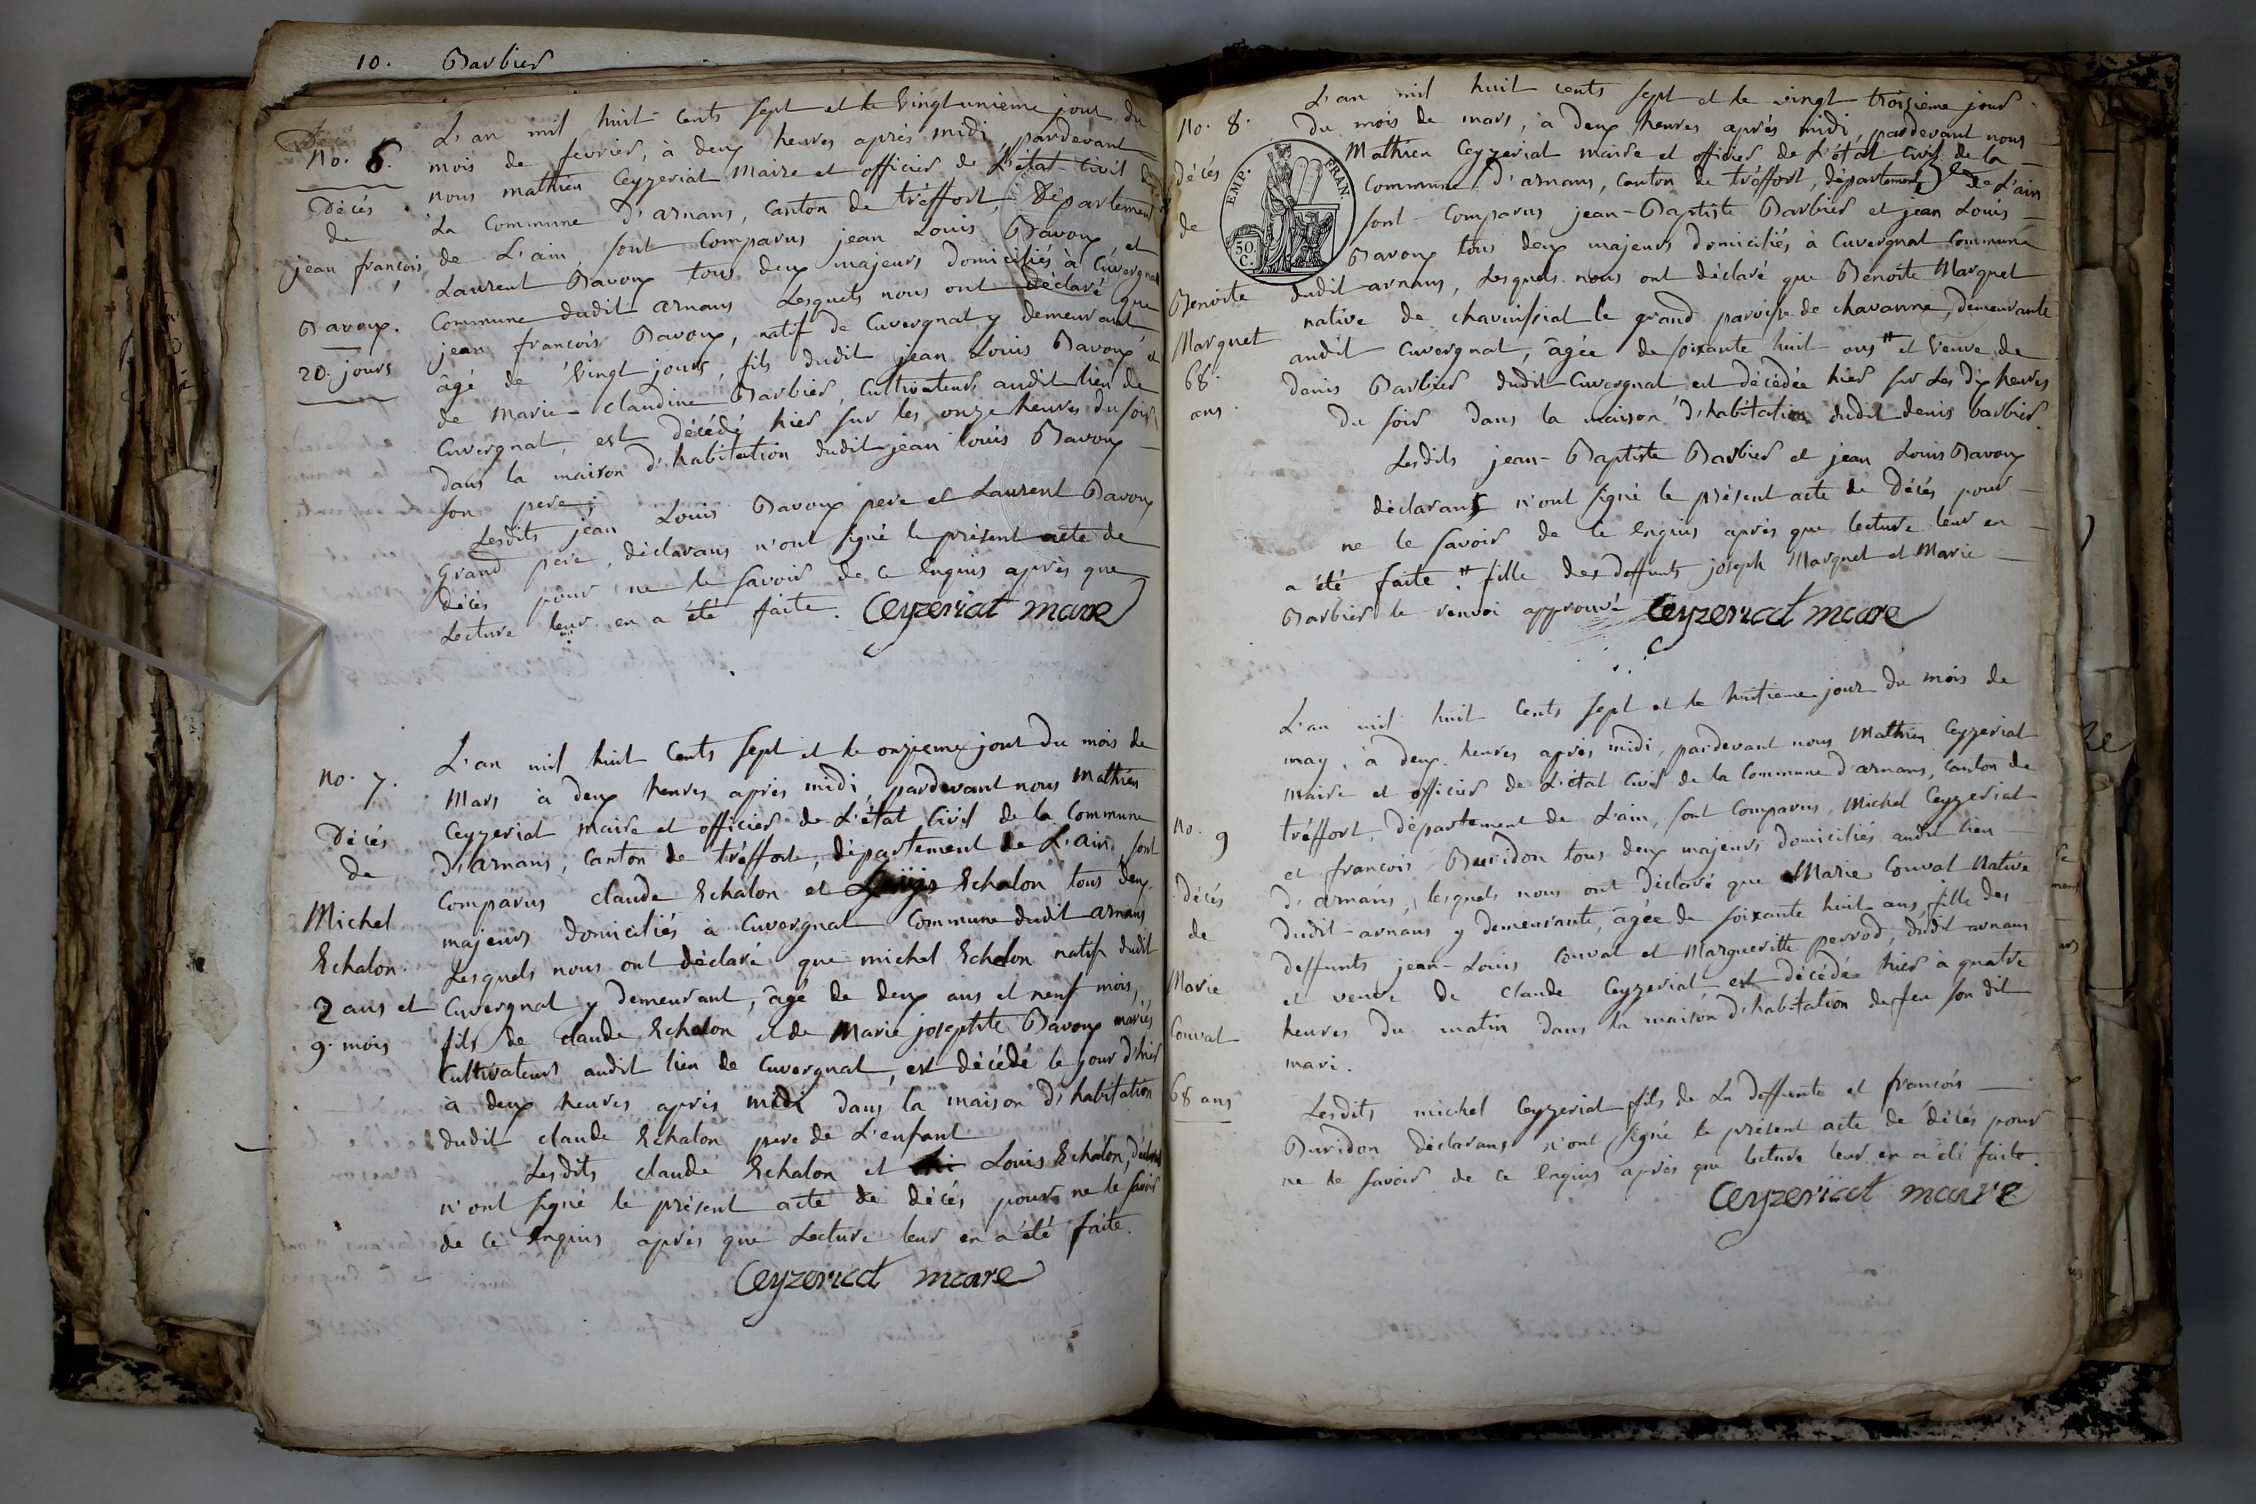 10. Barbier
No. 6.
Décés
de
jean françois
Bavoux.
20. jours
L'an mil huit cents sept et le vingt unieme jour du
mois de fevrier, à deux heures après midi, pardevant
nous mathieu Ceyzeriat Maire et officier de L'état Civil de
La Commune d'arnans, canton de tréffort, Département
de L'ain, sont Comparus jean Louis Bavoux, et
Laurent Bavoux tous deux majeurs domiciliés à Cuvergnat
Commune dudit arnans Lesquels nous ont déclaré que
jean françois Bavoux, natif de Cuvergnat y demeurant
âgé de vingt jours, fils dudit jean Louis Bavoux et
de Marie-Claudine Barbier, Cultivateurs audit lieu de
Cuvergnat, est décédé hier sur les onze heures du soir,
dans la maison d'habitation dudit jean Louis Bavoux
son pere;
Lesdits jean Louis Bavoux pere et Laurent Bavoux
grand pere, déclarans n'ont signé le présent acte de
décés pour ne le savoir de ce Enquis après que
Lecture leur en a été faite. Ceyzeriat mare
No. 7.
Décés
de
Michel
Echalon.
2 ans et
9. mois
L'an mil huit Cents sept et le onzieme jour du mois de
Mars à deux heures après midi, pardevant nous Mathieu
Ceyzeriat maire et officier de L'état Civil de la Commune
D'arnans, Canton de tréffort, département de L'ain, sont
Comparus claude Echalon et Echalon tous deux
majeurs domiciliés à Cuvergnat Commune dudit arnans
Lesquels nous ont déclaré que michel Echalon natif dudit
Cuvergnat y demeurant, âgé de deux ans et neuf mois,
fils de claude Echalon et de Marie josephte Bavoux mariés
Cultivateurs audit lieu de Cuvergnat, est décédé le jour d'hier
à deux heures après midi dans la maison d'habitation
dudit claude Echalon pere de L'enfant
Lesdits claude Echalon et Louis Echalon,
n'ont signé le présent acte de décés pour ne le savoir
de ce Enquis après que Lecture leur en a été faite.
Ceyzeriat mare
No. 8.
Décés
de
Benoite
Marquet
68.
ans.
EMP. FRAN.
50 C.
L'an mil huit cents sept et le vingt troisieme jour
du mois de mars, à deux heures après midi, pardevant nous
Mathieu Ceyzeriat maire et officier de L'état civil de la
Commune d'arnans, canton de tréffort, département de L'ain
sont Comparus jean-Baptiste Barbier et jean Louis
Bavoux tous deux majeurs domiciliés à Cuvergnat Commune
dudit arnans, Lesquels nous ont déclaré que Benoite Marquet
native de chavinssiat le grand paroisse de chavanne, demeurante
audit Cuvergnat, âgée de soixante huit ans # et veuve de
denis Barbier dudit Cuvergnat est décédée hier sur Les dix heures
du soir dans la maison d'habitation dudit denis barbier.
Lesdits jean-Baptiste Barbier et jean Louis Bavoux
déclarans n'ont signé le présent acte de Décés pour
ne le savoir de ce Enquis après que lecture leur en
a été faite. # fille des deffunts joseph Marquet et Marie
Barbier le renvoi approuvé Ceyzeriat mare
No. 9
Décés
de
Marie
Couval
68 ans
L'an mil huit Cents sept et le huitieme jour du mois de
may, à deux heures après midi, pardevant nous Mathieu Ceyzeriat
maire et officier de L'état Civil de la Commune d'arnans, Canton de
tréffort, département de L'ain, sont Comparus, Michel Ceyzeriat
et françois Buridon tous deux majeurs domiciliés audit lieu
d'arnans, lesquels nous ont déclaré que Marie Couval Native
dudit-arnans y demeurante, âgée de soixante huit ans fille des
deffunts jean-Louis Couval et Margueritte perrod, dudit arnans
et veuve de claude Ceyzeriat est décédée hier à quatre
heures du matin dans la maison d'habitation de feu son dit
mari.
Lesdits michel Ceyzeriat fils de La deffunte et françois
Buridon déclarans n'ont signé le présent acte de décés pour
ne le savoir de ce Enquis après que lecture leur en a été faite.
Ceyzeriat mare